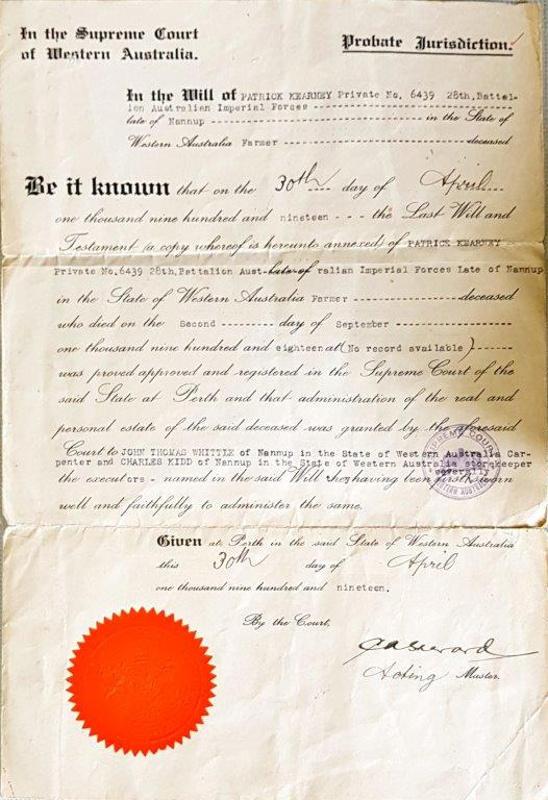 In the Supreme Court
of Western Australia.
Probate Jurisdiction.
In the Will of PATRICK KEARNEY Private No. 6439 28th,Battal-
ion Australian Imperial Forces ------------------------------
late of Nannup ------------------------------ in the State of
Western Australia Farmer ------------------------------ deceased
Be it known that on the 30th day of April
one thousand nine hundred and nineteen - - - the Last Will and
Testament (a copy whereof is hereunto annexed) of PATRICK KEARNEY
Private No.6439 28th,Battalion Aust-late of ralian Imperial Forces Late of Nannup
in the State of Western Australia Farmer --------------- deceased
who died on the Second --------- day of September ----------------
one thousand nine hundred and eighteen at (No record available) -------
was proved approved and registered in the Supreme Court of the
said State at Perth and that administration of the real and
personal estate of the said deceased was granted by the aforesaid
Court to JOHN THOMAS WHITTLE of Nannup in the State of Western Australia Car-
penter and CHARLES KIDD of Nannup in the State of Western Australia storekeeper
severally
the executors - named in the said Will they having been first sworn
well and faithfully to administer the same.
SUPREME COURT
WESTERN AUSTRALIA
Given at Perth in the said State of Western Australia
this 30th day of April
one thousand nine hundred and nineteen.
By the Court,
Acting Master.